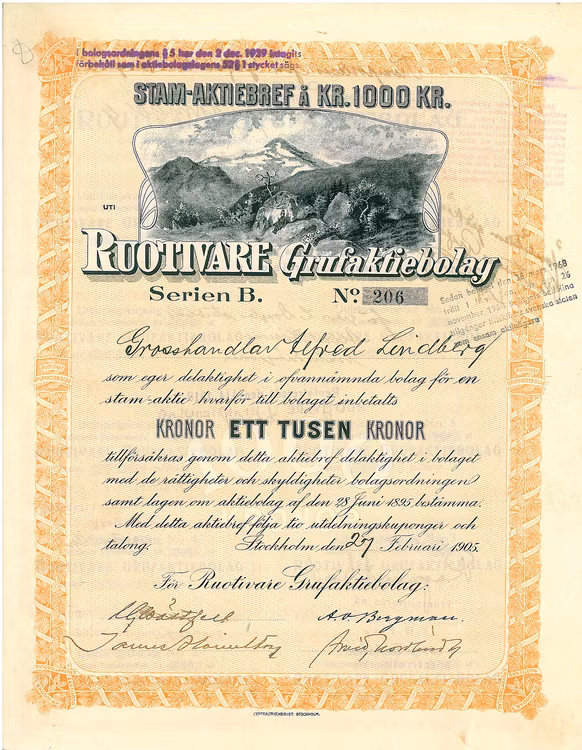 I bolagsordningens § 5 har den 2 dec. 1939 intagits
förbehåll som i aktiebolagslagens 52§ 1 stycket sägs
STAM-AKTIEBREF Å KR. 1000 KR.
UTI
RUOTIVARE Grufaktiebolag
Serien B. No. 206
Sedan bolaget den 28 mars 1968
trätt i
november 1968
tillgångar svenska staten
som ensam aktieägare
Grosshandlar Alfred Lindberg
som eger delaktighet i ofvannämnda bolag för en
stam-aktie hvarför till bolaget inbetalts
KRONOR ETT TUSEN KRONOR
tillförsäkras genom detta aktiebref delaktighet i bolaget
med de rättigheter och skyldigheter bolagsordningen
samt lagen om aktiebolag af den 28 Juni 1895 bestämma.
Med detta aktiebref följa tio utdelningskuponger och
talong. Stockholm den 27 Februari 1905.
För Ruotivare Grufaktiebolag:
A. V. Bergman.
Arvid Nordlindh
CENTRALTRYCKERIET, STOCKHOLM.